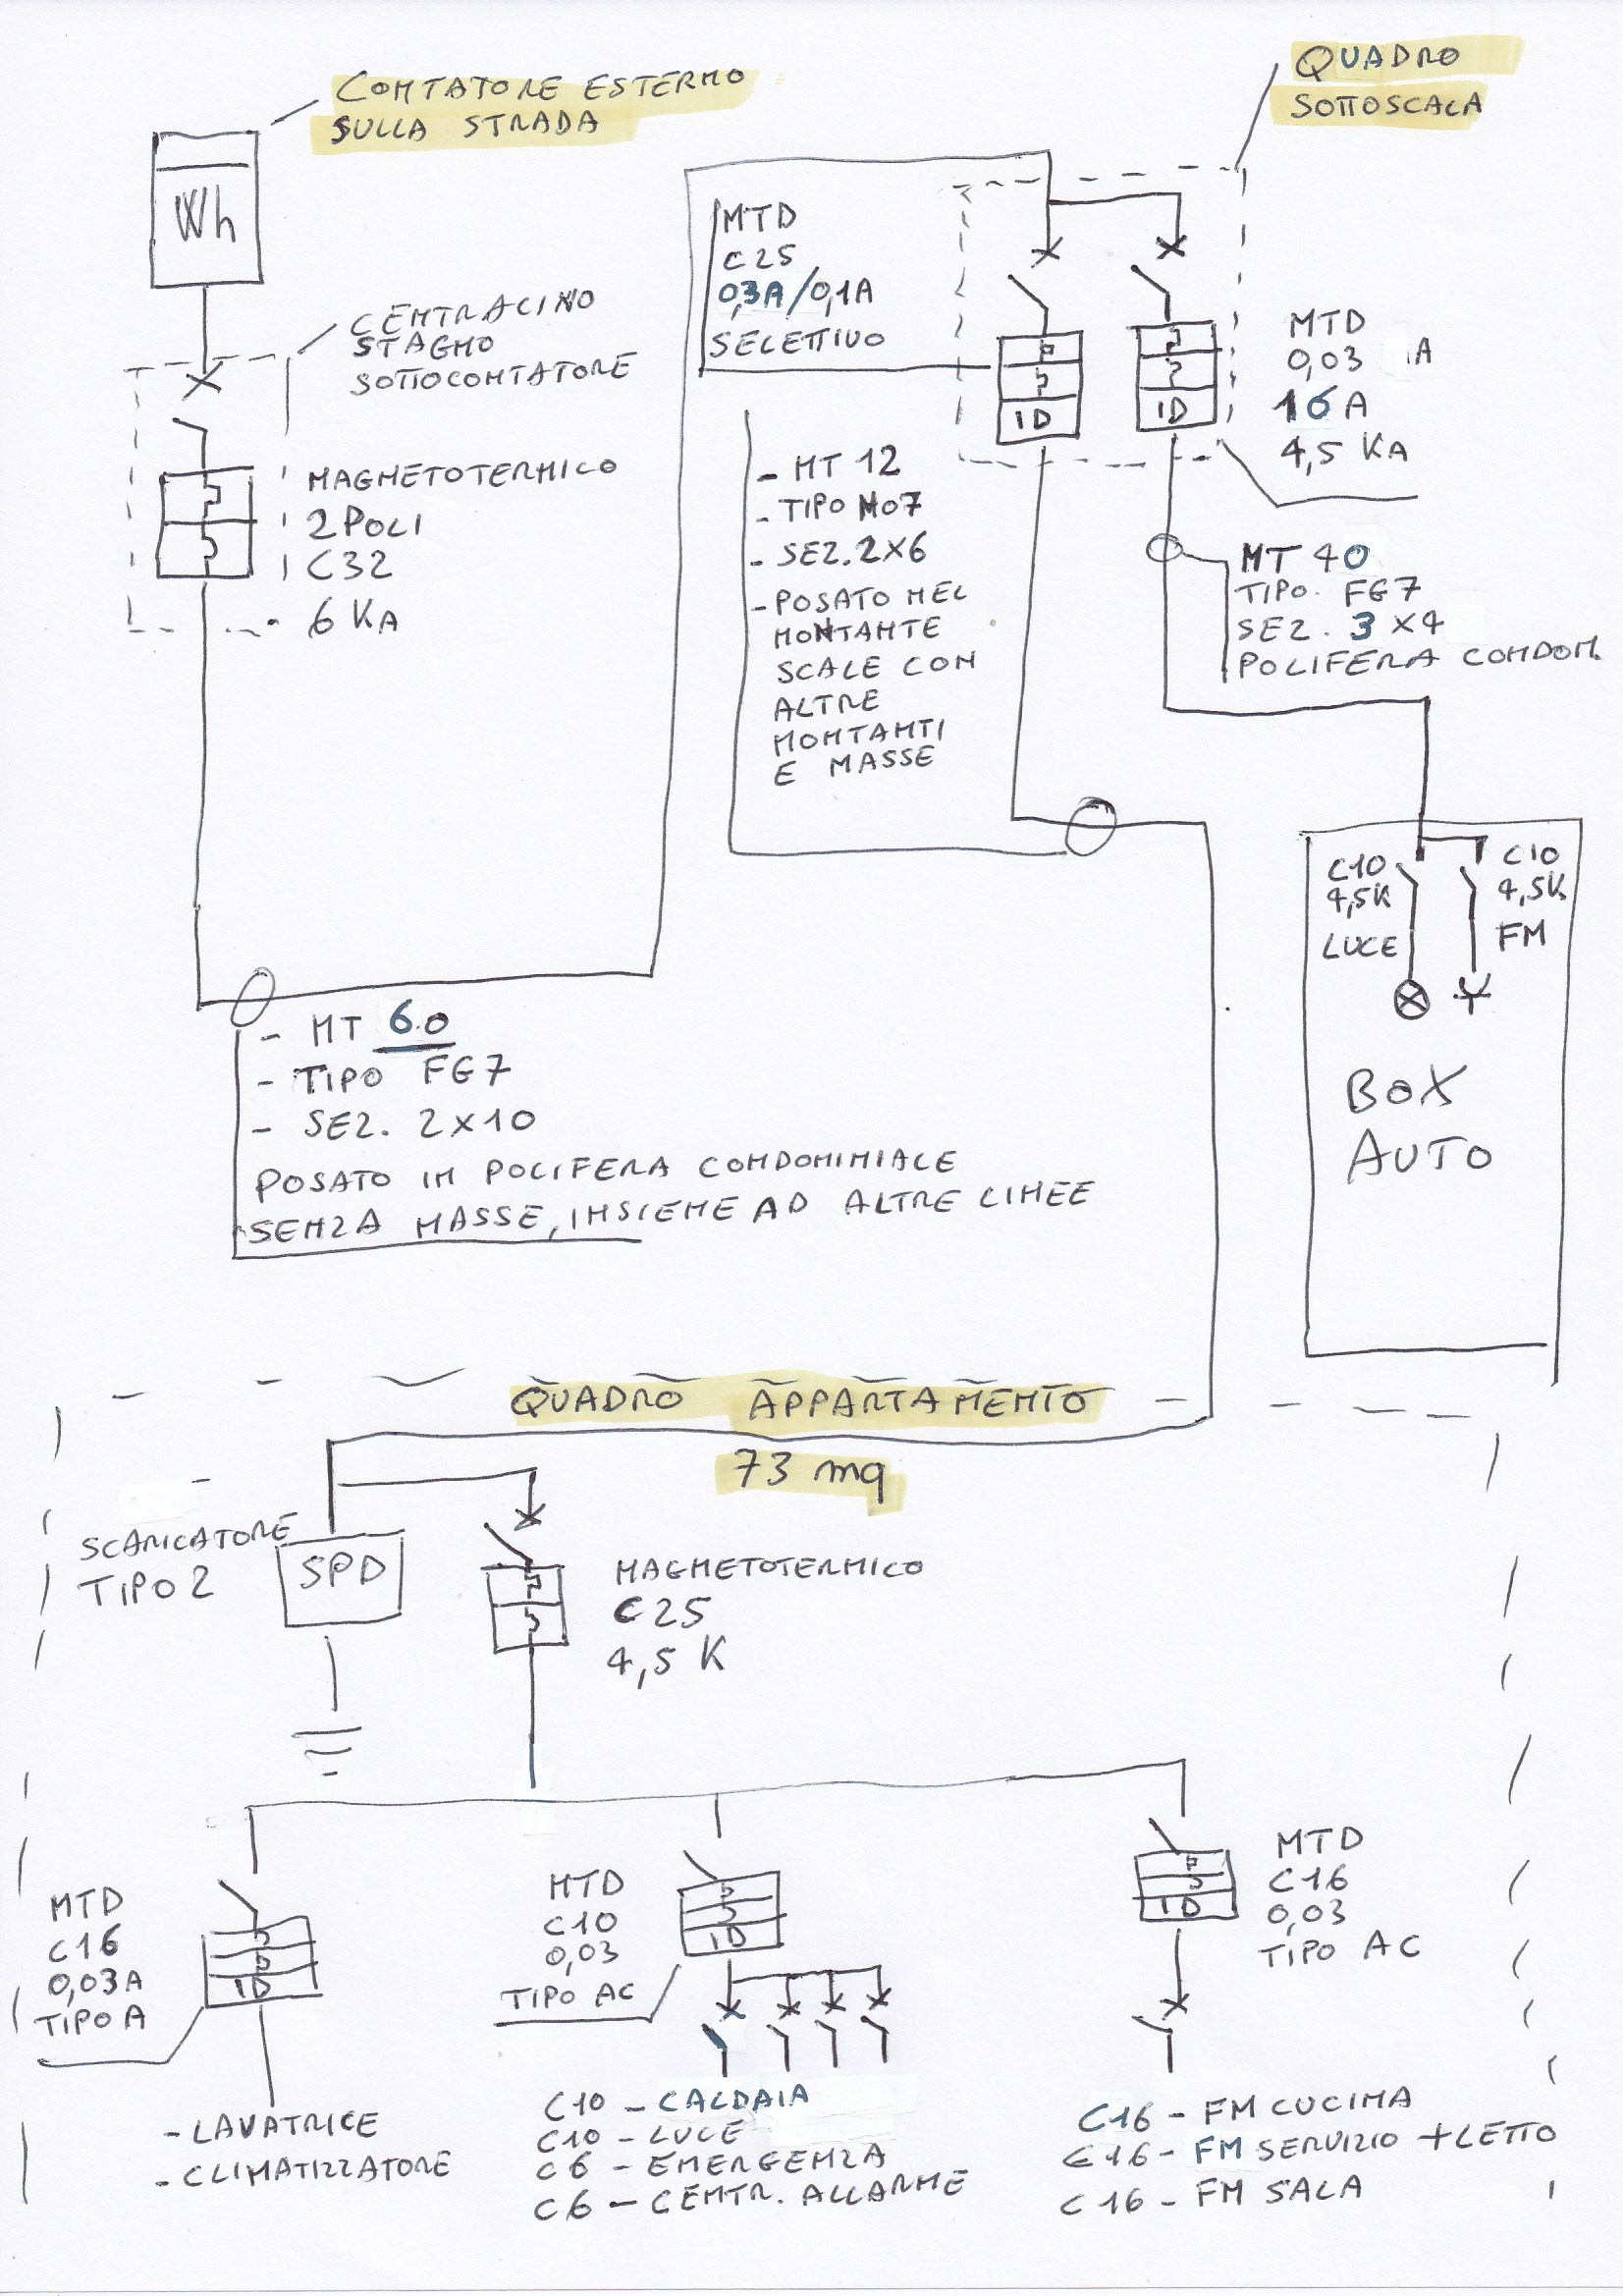 CONTATORE ESTERNO
SULLA STRADA
Wh
CENTRALINO
STAGNO
SOTTOCONTATORE
MAGNETOTERMICO
2 POLI
C32
6 KA
QUADRO
SOTTOSCALA
MTD
C25
0,3A/0,1A
SELETTIVO
ID
ID
MTD
0,03 A
16 A
4,5 KA
- MT 12
- TIPO N07
- SEZ. 2X6
- POSATO NEL
MONTANTE
SCALE CON
ALTRE
MONTANTI
E MASSE
MT 40
TIPO. FG7
SEZ. 3X4
POLIFERA CONDOM.
C10
4,5K
LUCE
C10
4,5K
FM
BOX
AUTO
- MT 60
- TIPO FG7
- SEZ. 2X10
POSATO IN POLIFERA CONDOMINIALE
SENZA MASSE, INSIEME AD ALTRE LINEE
QUADRO APPARTAMENTO
73 mq
SCARICATORE
TIPO 2
SPD
MAGNETOTERMICO
C25
4,5 K
MTD
C16
0,03A
TIPO A
ID
- LAVATRICE
- CLIMATIZZATORE
MTD
C10
0,03
TIPO AC
ID
C10 - CALDAIA
C10 - LUCE
C6 - EMERGENZA
C6 - CENTR. ALLARME
MTD
C16
0,03
TIPO AC
ID
C16 - FM CUCINA
C16 - FM SERVIZIO + LETTO
C16 - FM SALA